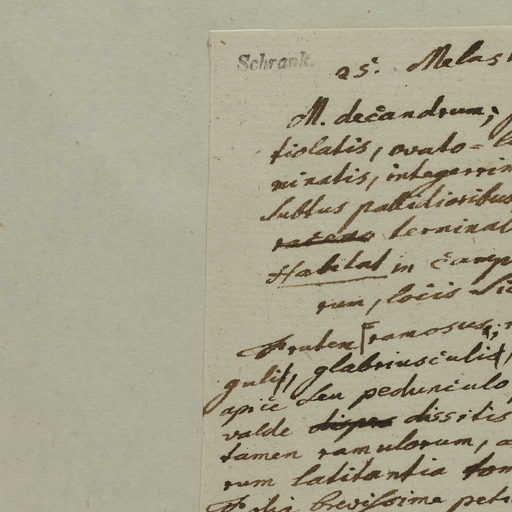 Schrank.
25. Melas
M. decandrum;
tiolatis, ovato=
minatis, integerrim
subtus pallidioribus
racemo terminal
Habitat in camp
rum, locis
Frutex ramosus,
gulis, glabriusculis,
apice seu pedunculo
valde dispers dissitis
tamen ramulorum, a
rum latitantia tom
Folia brevissime peti